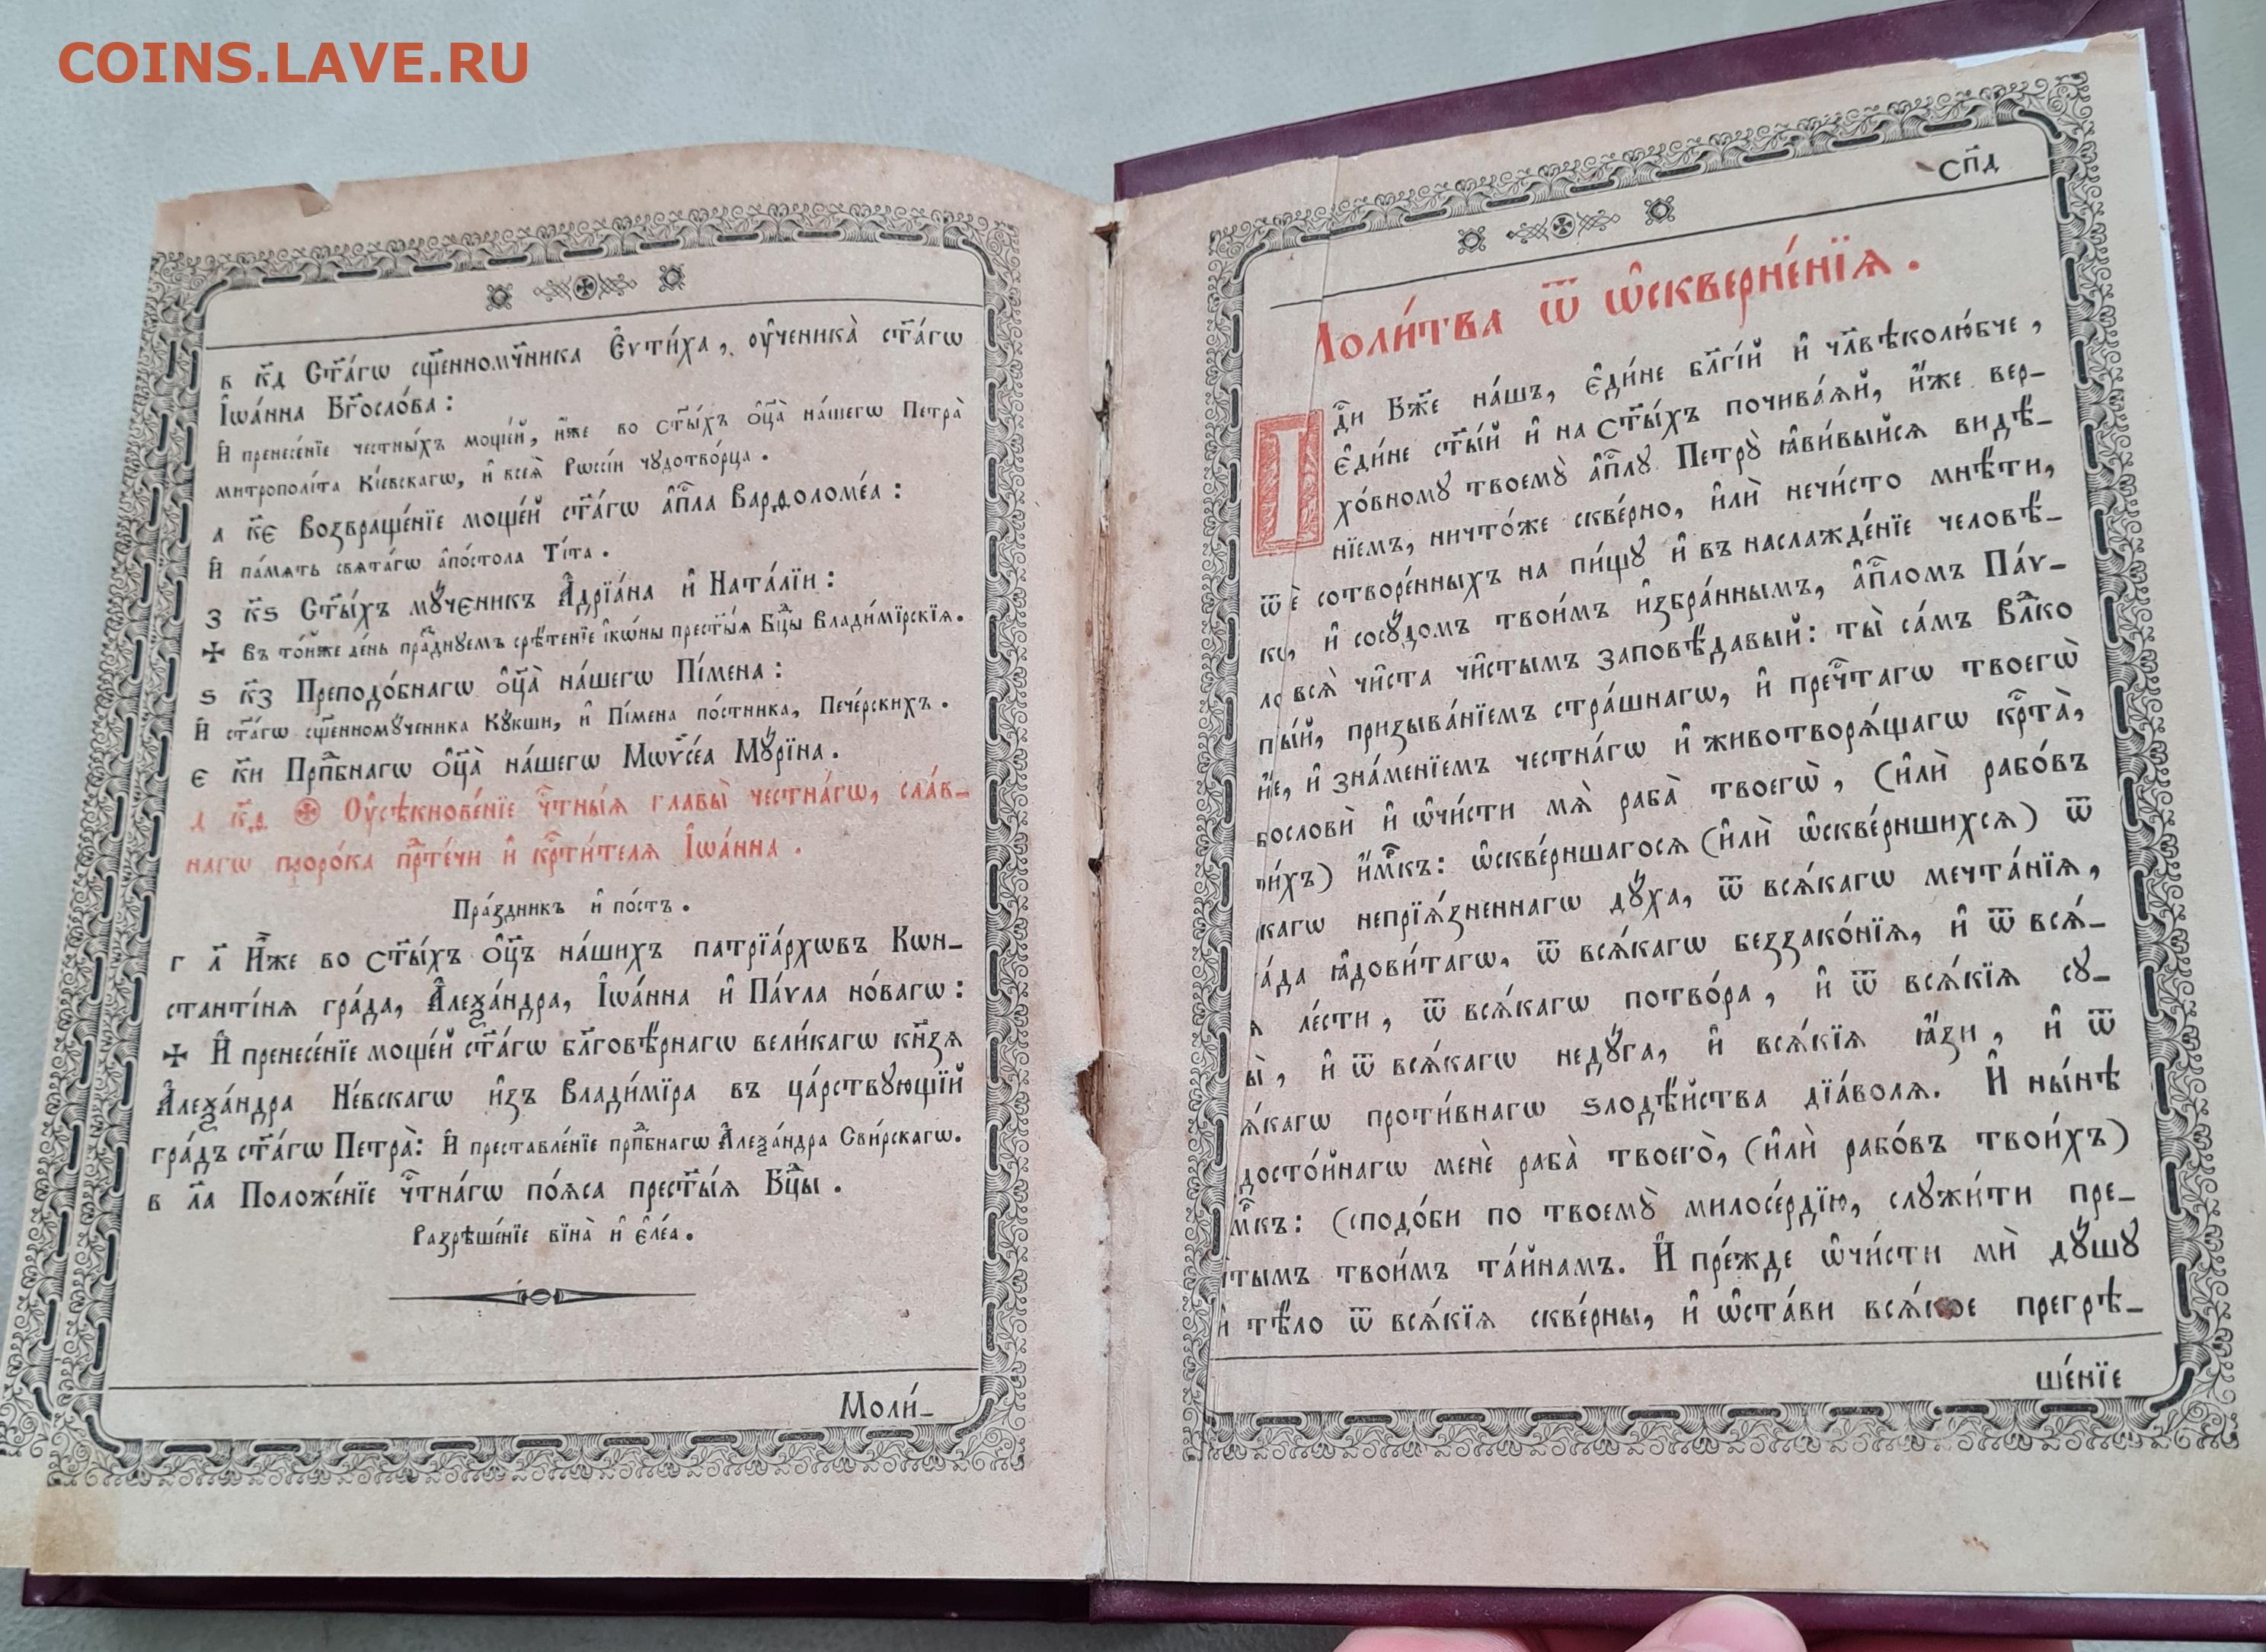 COINS.LAVE.RU
в к҃д Ст҃а́гѡ сщ҃енномч҃ника Є҆ѵти́ха, ᲂу҆ченика̀ ст҃а́гѡ
І҆ѡа́нна Бг҃осло́ва:
И҆ пренесе́нїе честны́хъ моще́й, и҆́же во ст҃ы́хъ ѻ҆ц҃а̀ на́шегѡ Петра̀
митрополі́та Кі́евскагѡ, и҆ всеѧ̀ Рѡссі́и чꙋдотво́рца.
д к҃є Возвраще́нїе моще́й ст҃а́гѡ а҆п҃ла Варѳоломе́а:
И҆ па́мѧть свѧта́гѡ а҆по́стола Ті́та.
з к҃ѕ Ст҃ы́хъ мꙋ́ченикъ А҆дрїа́на и҆ Ната́лїи:
✠ Въ то́йже де́нь пра́зднꙋемъ срѣ́тенїе і҆кѡ́ны прест҃ы́ѧ Бц҃ы Влади́мїрскїѧ.
ѕ к҃з Преподо́бнагѡ ѻ҆ц҃а̀ на́шегѡ Пі́мена:
И҆ ст҃а́гѡ сщ҃енномꙋ́ченика Кꙋ́кши, и҆ Пі́мена по́стника, Пече́рскихъ.
є к҃и Прп҃бнагѡ ѻ҆ц҃а̀ на́шегѡ Мѡѷсе́а Мꙋ́рїна.
Оу҆сѣкнове́нїе чⷭ҇тны́ѧ главы̀ честна́гѡ, сла́в-
нагѡ проро́ка прⷣте́чи и҆ крⷭ҇ти́телѧ І҆ѡа́нна.
Пра́здникъ и҆ по́стъ.
г л҃ И҆̀же во ст҃ы́хъ ѻ҆ц҃ъ на́шихъ патрїа́рхѡвъ Кѡн-
станті́нѧ гра́да, А҆леѯа́ндра, І҆ѡа́нна и҆ Па́ѵла но́вагѡ:
✠ И҆ пренесе́нїе моще́й ст҃а́гѡ бл҃говѣ́рнагѡ вели́кагѡ кн҃зѧ
А҆леѯа́ндра Не́вскагѡ и҆зъ Влади́мїра въ ца́рствꙋющїй
гра́дъ ст҃а́гѡ Петра̀: И҆ преставле́нїе прп҃бнагѡ А҆леѯа́ндра Сви́рскагѡ.
в л҃а Положе́нїе чⷭ҇тна́гѡ по́ѧса прест҃ы́ѧ Бц҃ы.
Разрѣше́нїе вїна̀ и҆ є҆ле́а.
Моли́-
сп҃д
Моли́тва ѿ ѡ҆скверне́нїѧ.
Гдⷭ҇и Бж҃е на́шъ, є҆ди́не бл҃гі́й и҆ чл҃вѣколю́бче,
є҆ди́не ст҃ы́й и҆ на ст҃ы́хъ почива́ѧй, и҆́же вер-
хо́вномꙋ твоемꙋ̀ а҆п҃лꙋ Петрꙋ̀ ꙗ҆ви́выйсѧ видѣ́-
нїемъ, ничто́же скве́рно, и҆лѝ нечи́сто мнѣ́ти,
ѿ сотворе́нныхъ на пи́щꙋ и҆ въ наслажде́нїе человѣ́-
и҆ сосꙋ́домъ твои́мъ и҆збра́ннымъ, а҆п҃ломъ Па́ѵ-
всѧ̀ чи҆́ста чи҆́стымъ заповѣ́давый: ты̀ са́мъ Влⷣко
призыва́нїемъ стра́шнагѡ, и҆ пречⷭ҇тагѡ твоегѡ̀
и҆ зна́менїемъ честна́гѡ и҆ животворѧ́щагѡ крⷭ҇та̀,
и҆ ѡ҆чи́сти мѧ̀ раба̀ твоегѡ̀, (и҆лѝ рабо́въ
и҆́мⷬ҇къ: ѡ҆скве́рншагосѧ (и҆лѝ ѡ҆скве́рншихсѧ) ѿ
непрїѧ́зненнагѡ дꙋ́ха, ѿ всѧ́кагѡ мечта́нїѧ,
ꙗ҆дови́тагѡ, ѿ всѧ́кагѡ беззако́нїѧ, и҆ ѿ всѧ́-
ле́сти, ѿ всѧ́кагѡ потво́ра, и҆ ѿ всѧ́кїѧ сꙋ-
и҆ ѿ всѧ́кагѡ недꙋ́га, и҆ всѧ́кїѧ ꙗ҆́зи, и҆ ѿ
проти́внагѡ ѕлодѣ́йства дїа́волѧ. И҆ ны́нѣ
досто́йнагѡ менѐ раба̀ твоего̀, (и҆лѝ рабо́въ твои́хъ)
(сподо́би по твоемꙋ̀ милосе́рдїю, слꙋжи́ти пре-
твои́мъ та́йнамъ. И҆ пре́жде ѡ҆чи́сти мѝ дꙋ́шꙋ
и҆ тѣ́ло ѿ всѧ́кїѧ скве́рны, и҆ ѡ҆ста́ви всѧ́кое прегрѣ-
ше́нїе